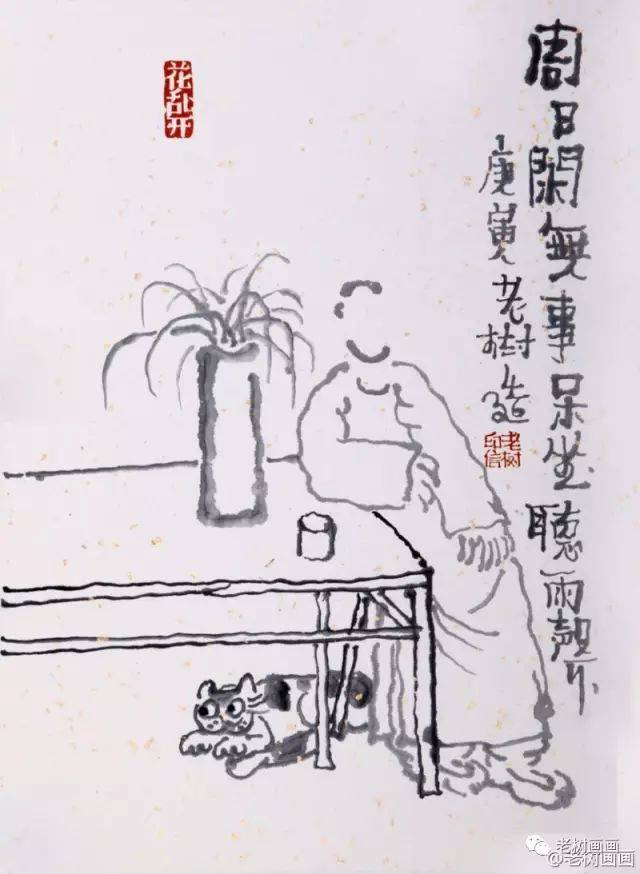 周日閑無事呆坐聽雨聲
庚寅老樹造
老树印信
花乱开
老树画画
@老树画画